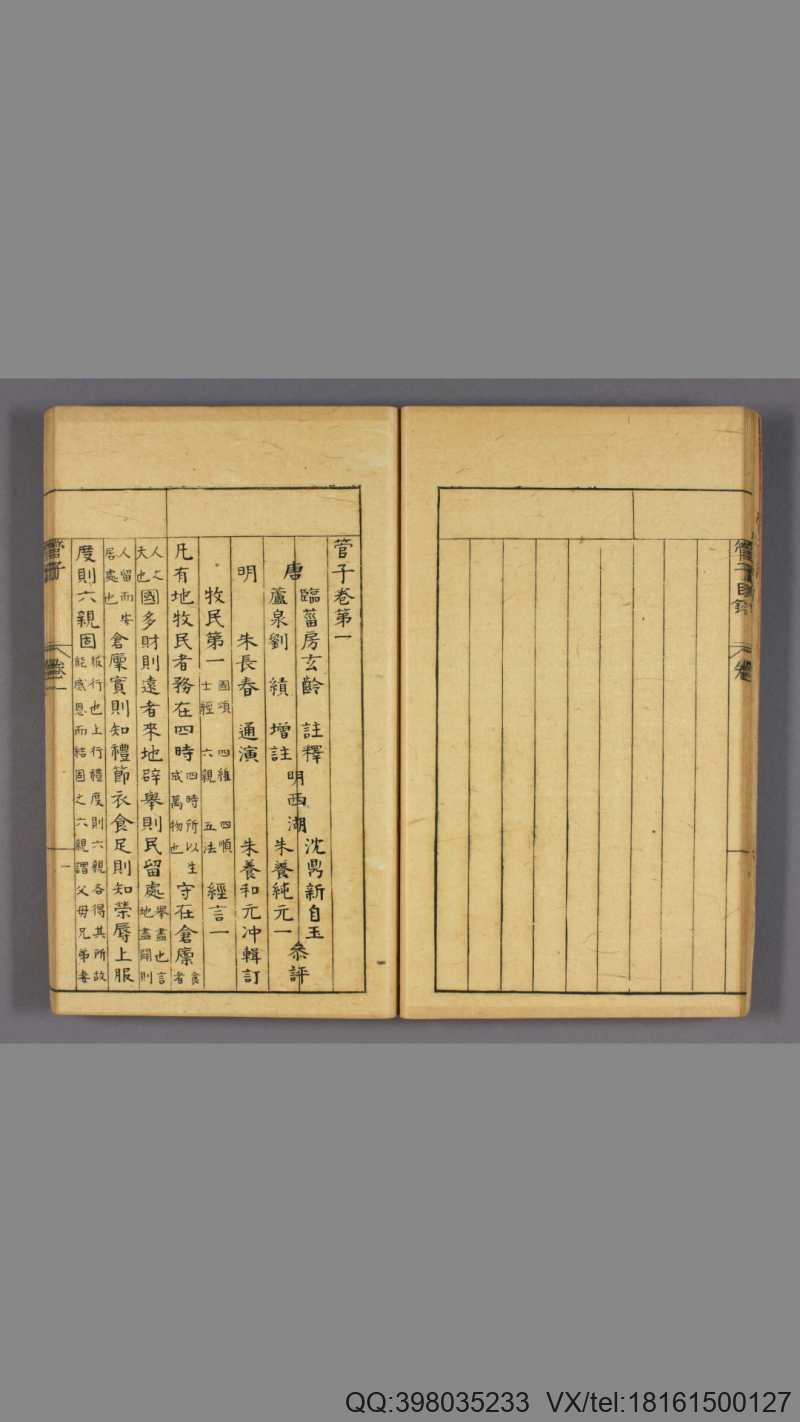 管子目錄
管子卷第一
唐 臨菑房玄齡 註釋 明西湖 沈鼎新自玉 叅評
蘆泉劉 績 增註 朱養純元一
明 朱長春 通演 朱養和元冲輯訂
牧民第一 國頌 四維 四順 士經 六親 五法 經言一
凡有地牧民者務在四時四時所以生成萬物也守在倉廩食者
人之天也國多財則遠者來地辟舉則民留處舉盡也言地盡闢則
人留而安居處也倉廩實則知禮節衣食足則知榮辱上服
度則六親固服行也上行禮度則六親各得其所故能感恩而結固之六親謂父母兄弟妻
管子 卷一 一
QQ:398035233 VX/tel:18161500127